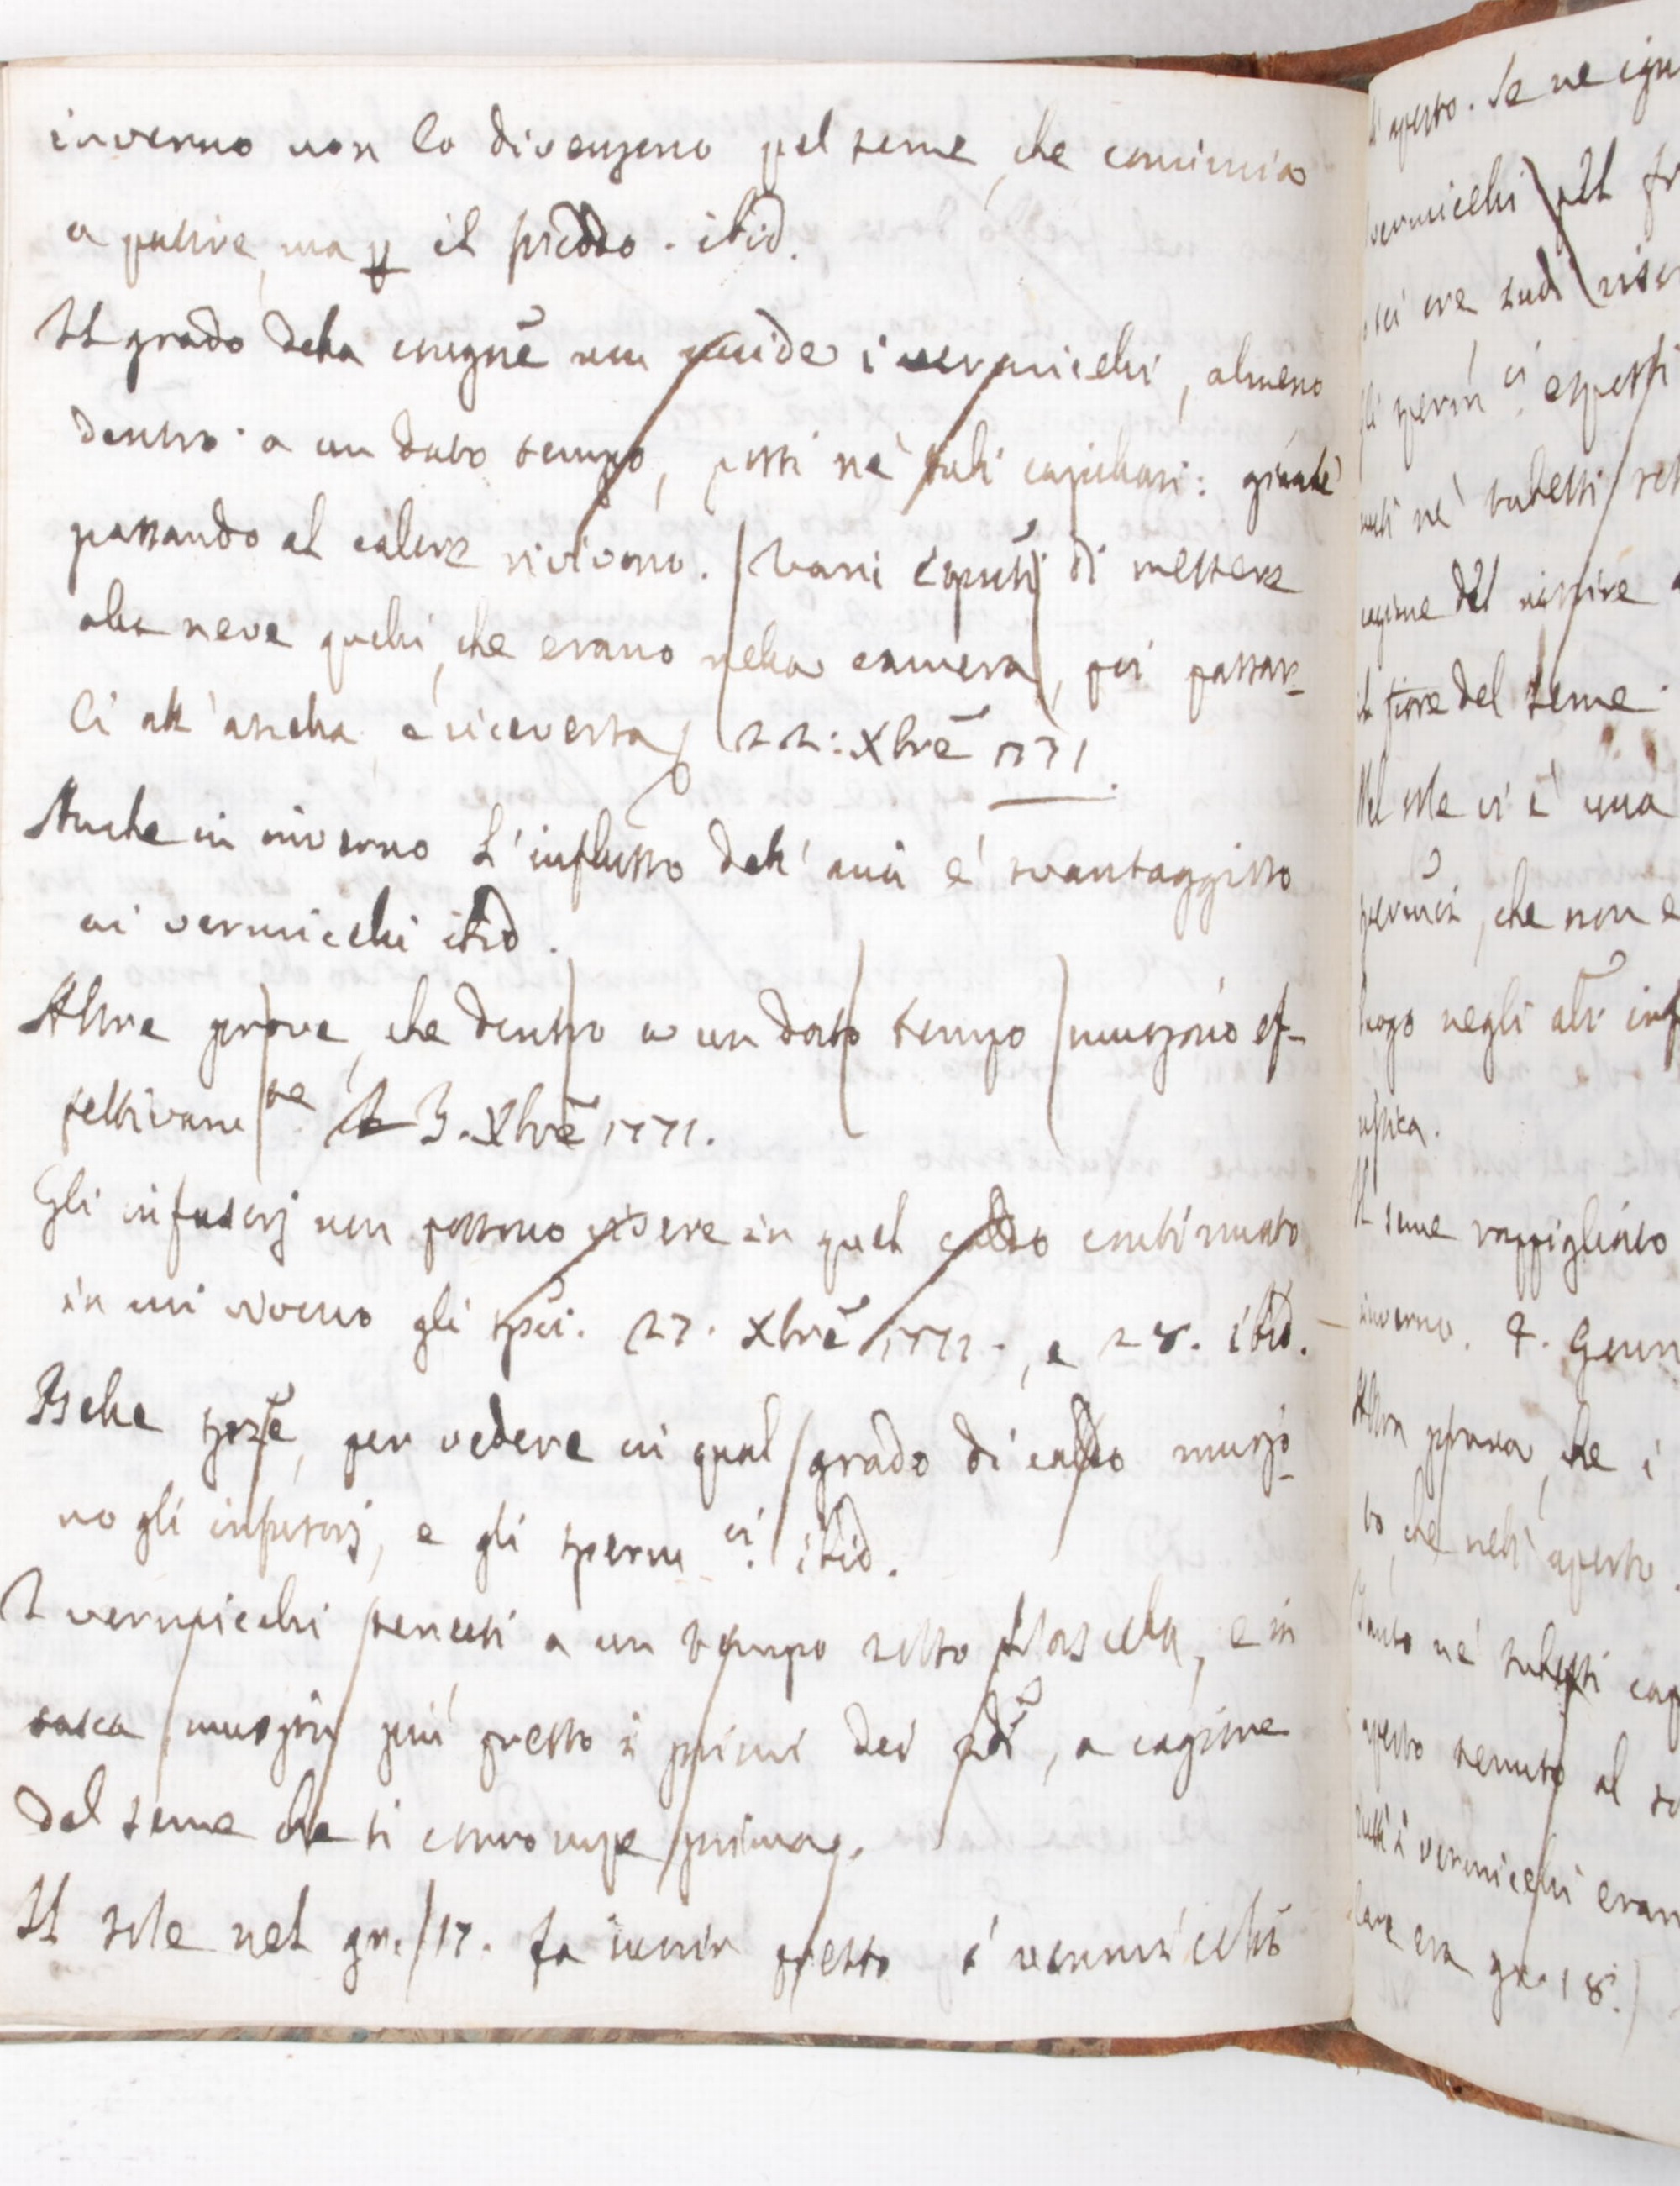 inverno non lo divengono pel seme, che comincia
a patire, ma p il freddo. ibid.
Il grado della congne non uccide i vermicelli, almeno
dentro a un dato tempo, posti ne' tubi capillari: giacchè
passando al calore rivivono. Varii di mettere
alla neve quelli, che erano nella camera, poi passar-
li all'ascella e viceversa 22: Xbre 1771.
Anche in inverno l'influsso dell'aria è svantaggioso
ai vermicelli ibid.
Altre prove, che dentro a un dato tempo muojono ef-
fettivamte 23. Xbre 1771.
Gli infusorj non possono vivere in quel caldo continuato
in cui vivono gli spci. 27. Xbre 1771., e 28. ibid.
Belle sperze, per vedere in qual grado di caldo muojo-
no gli infusorj, e gli sperm ci. ibid.
I vermicelli tenuti a un tempo sotto l'ascella, e in
sacca muojon più presto i primi dei 2di, a cagione
del seme che si corrompe prima.
Il sole nel gr. 17. fa morir presto i vermicelli
aperto. Se ne
vermicelli Il
ore
gli sperm ci esposti
ne' tubetti
cagione del
il fiore del seme.
Nel sole vi è una
che non
luogo negli altri
Il seme rappigliato
inverno. 7.
Altra prova, che i
che nell'aperto.
Tanto ne' tubetti
aperto tenuto al
tutti i vermicelli
era gr. 18.)